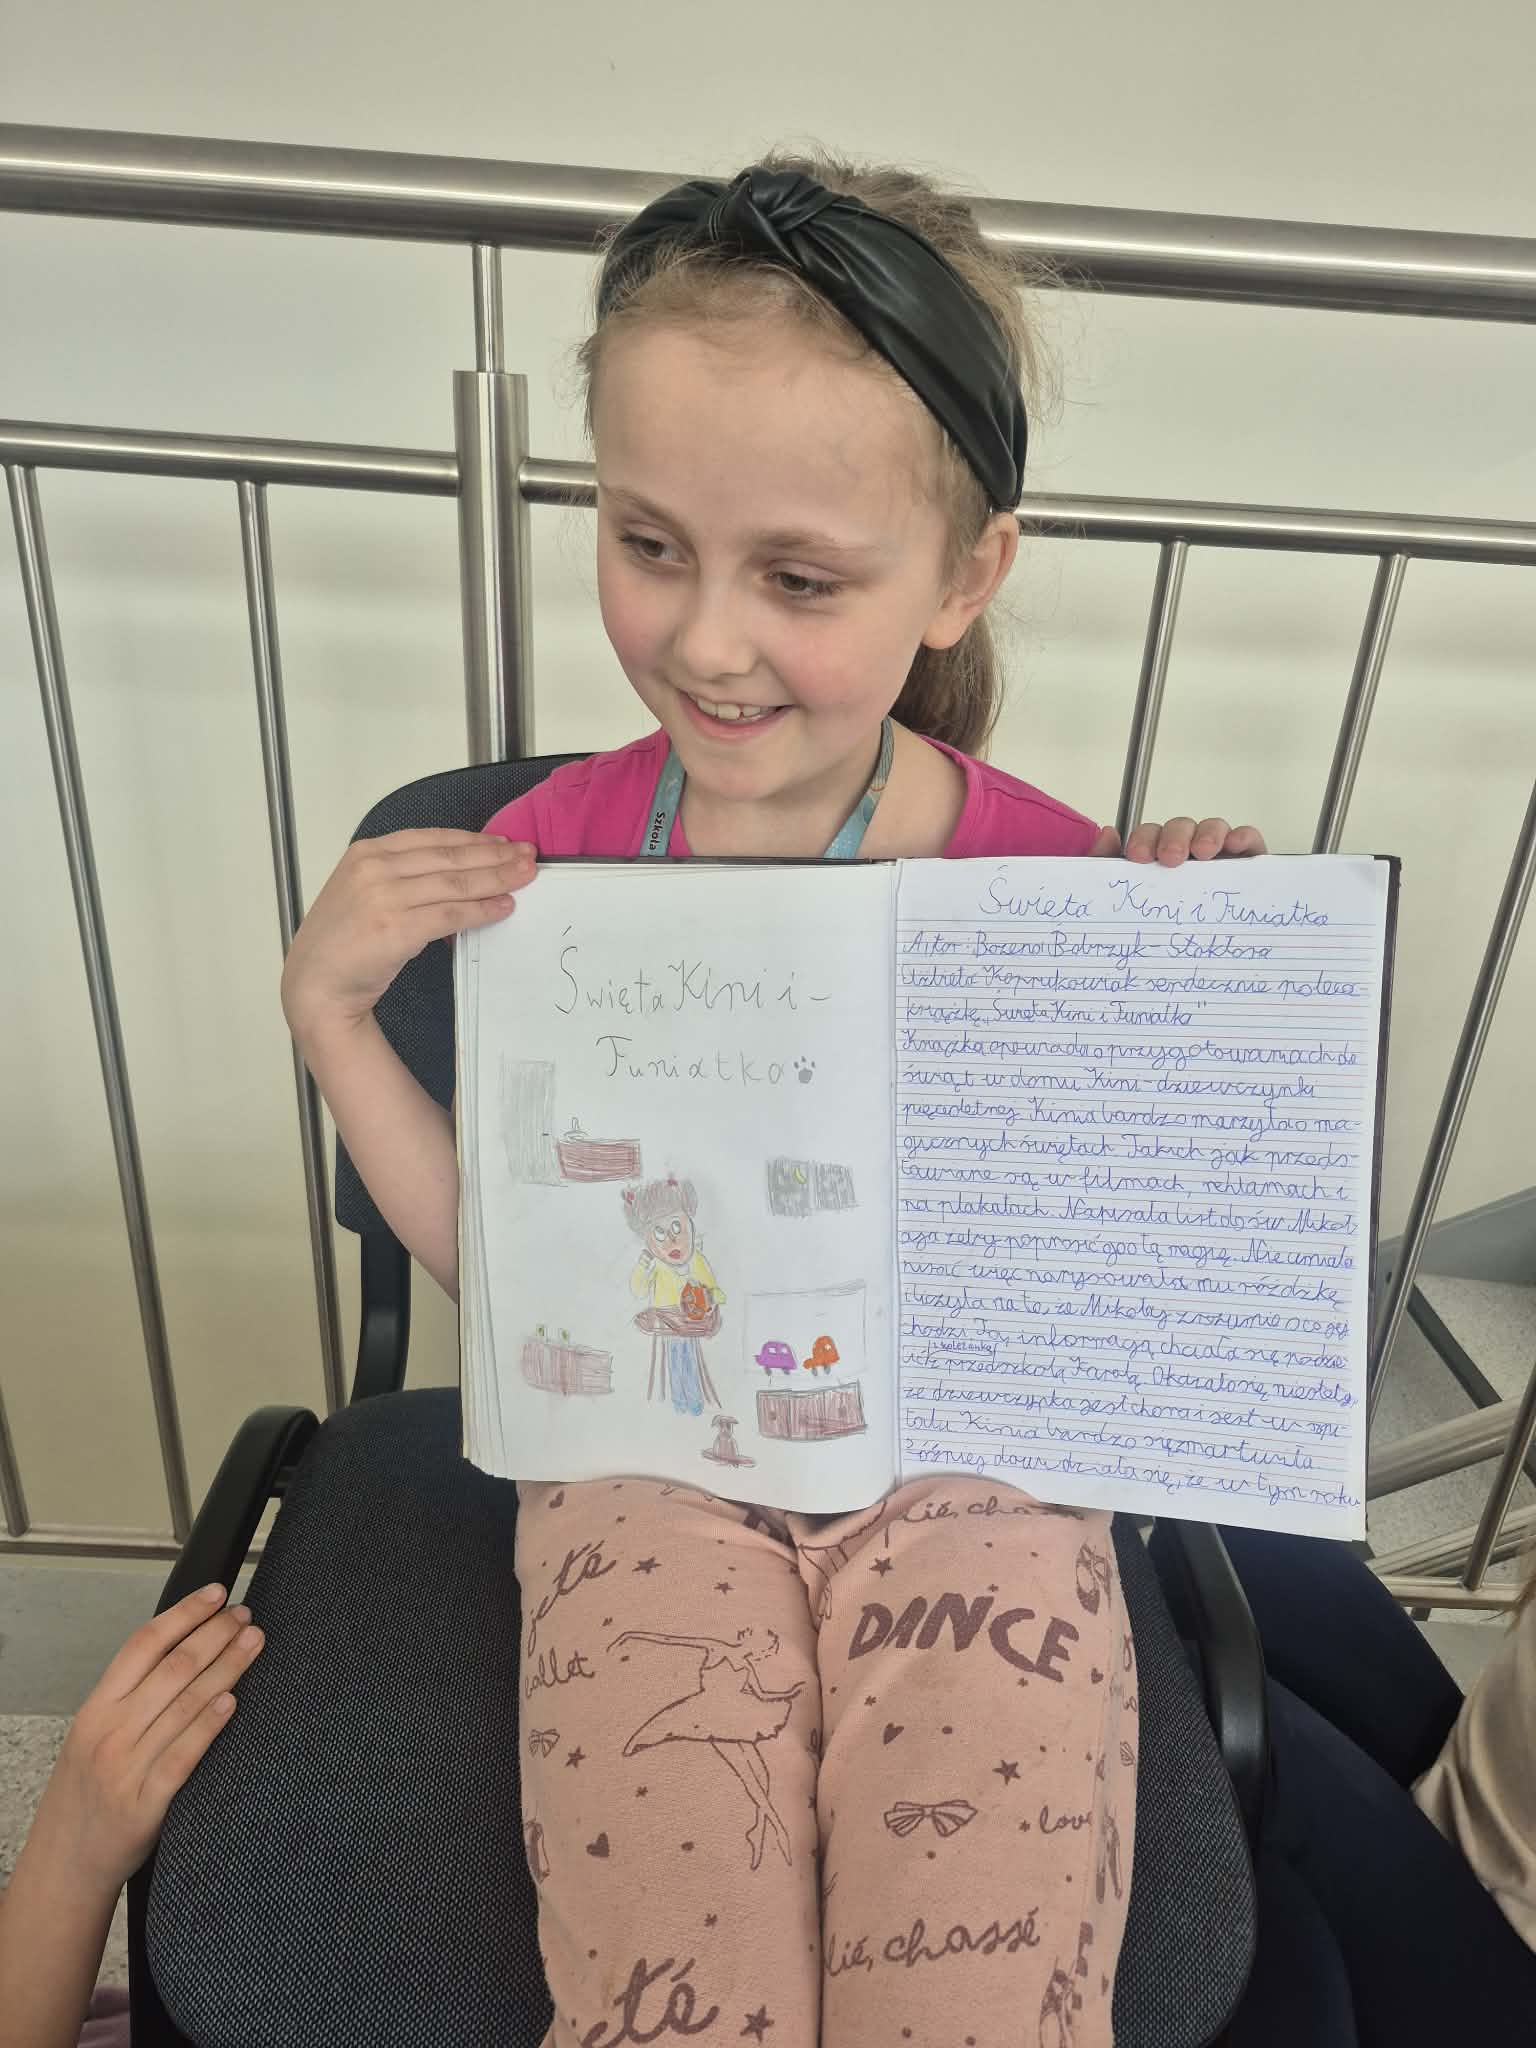 Szkoła
Święta Kini i -
Funiatka
Święta Kini i Funiatka
Autor: Bożena Bobrzyk - Stokłosa
Elżbieta Koprukowiak serdecznie poleca
książkę „Święta Kini i Funiatka"
Książka opowiada o przygotowaniach do
świąt w domu Kini - dziewczynki
pięcioletniej. Kinia bardzo marzyła o ma-
gicznych świętach. Takich jak przeds-
tawiane są w filmach, reklamach i
na plakatach. Napisała list do św. Mikoł-
aja żeby poprosić go o tą magię. Nie umiała
pisać więc narysowała mu różdżkę
i liczyła na to, że Mikołaj zrozumie o co jej
chodzi. Tą informacją chciała się podzie-
z koleżanką
lić z przedszkola Karolą. Okazało się niestety,
że dziewczynka jest chora i jest w szpi-
talu. Kinia bardzo się zmartwiła.
Później dowiedziała się, że w tym roku
lié, cha
jeté
ballet
DANCE
love
lié, chassé
eté